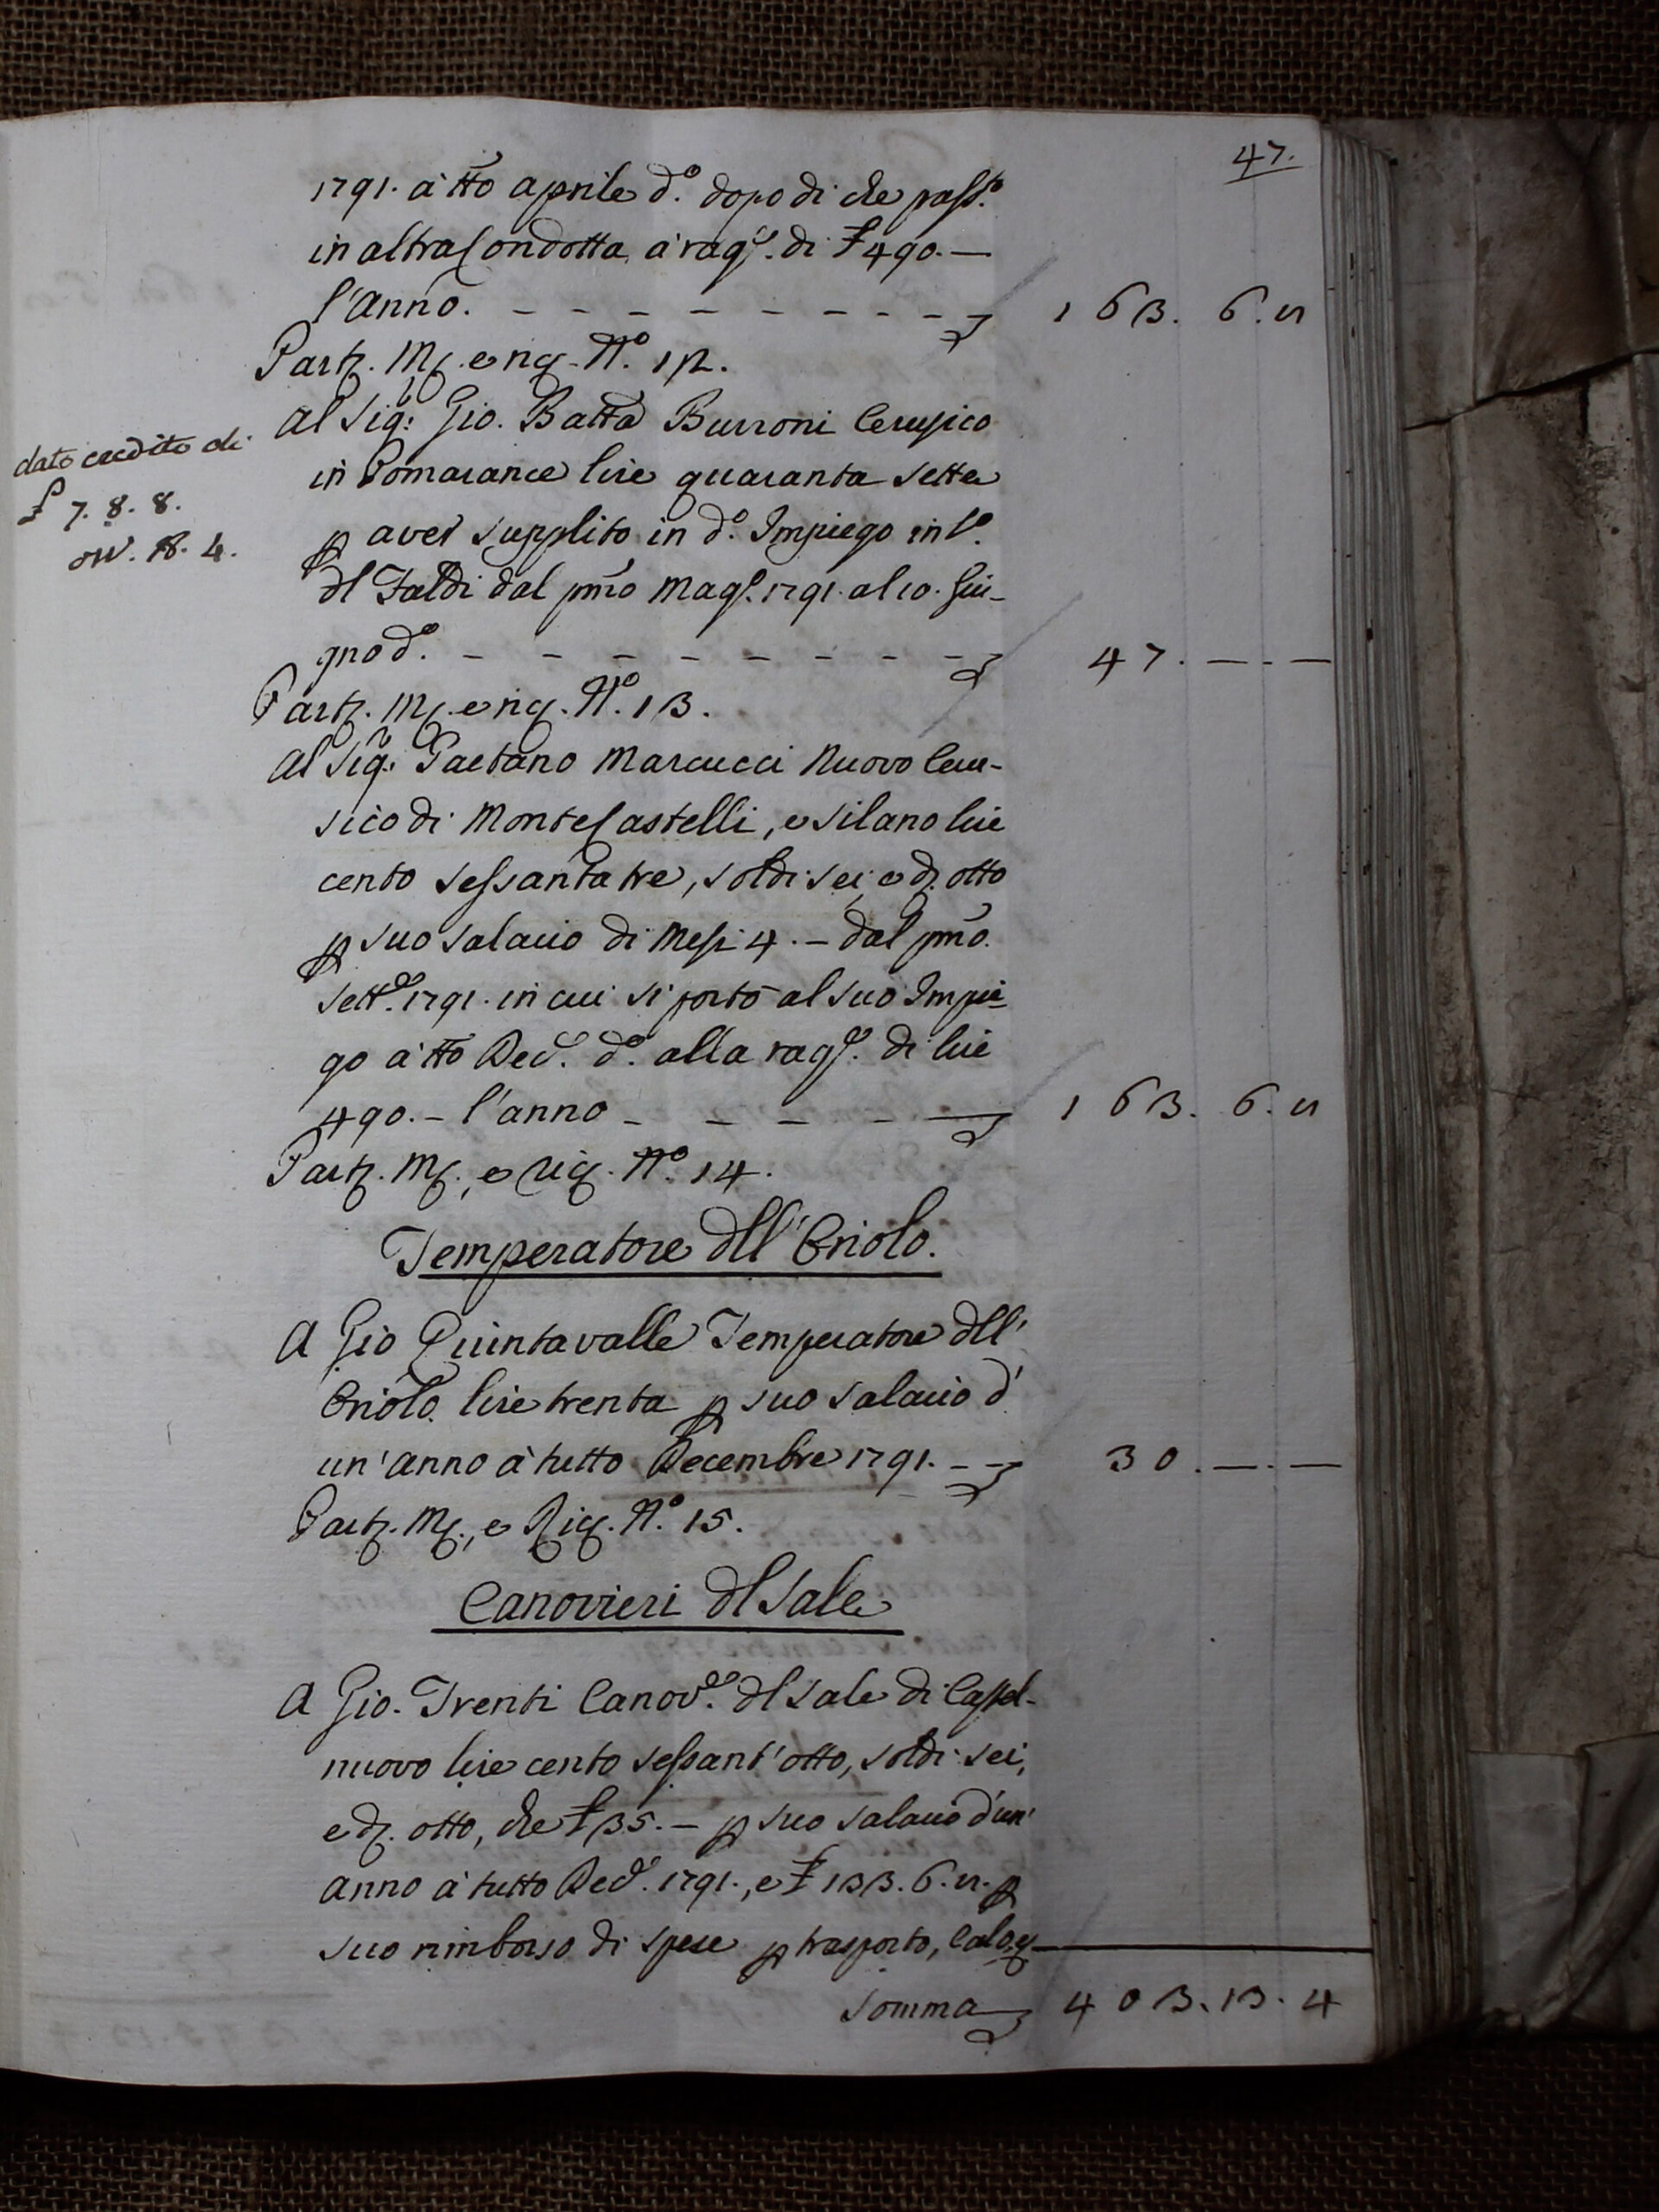 47.
1791. à tt̃o aprile d.º dopo di che pass.º
in altra Condotta à rag.e di £ 490.—
l'anno. – – – – – – – – – 163. 6. 8
Part. M. e rig. N.º 12.
Al Sig.r Gio. Batta Burroni Cerusico
in Pomarance lire quaranta sette
dato credito di
£ 7. 8. 8.
p aver supplito in d.º Impiego in l.º
dl Faldi dal pmo Mag.o 1791. al 10. Giu-
gno d.º – – – – – – – – 47. — . —
Part. M. e rig. N.º 13.
Al Sig.r Gaetano Marcucci Nuovo Ceru-
sico di MonteCastelli, e Silano lire
cento sessanta tre, soldi sei, e d. otto
p suo salario di Mesi 4. – dal pmo.
Sett.e 1791. in cui si portò al suo Impie
go à tt̃o Dec.e d.º alla rag.e di lire
490. – l'anno – – – – — 163. 6. 8
Part. M., e Rig. N.º 14.
Temperatore dll' Oriolo.
A Gio Quintavalle Temperatore dll'
Oriolo lire trenta p suo salario d'
un' anno à tutto Decembre 1791. – – 30. — . —
Part. M., e Rig. N.º 15.
Canovieri dl Sale
A Gio. Trenti Canov.e dl Sale di Castel-
nuovo lire cento sessant' otto, soldi sei,
e d. otto, che £ 35. – p suo salario d'un'
anno à tutto Dec.e 1791., e £ 133. 6. 8. p
suo rimborso di spese p trasporto, Calo,
Somma 403. 13. 4